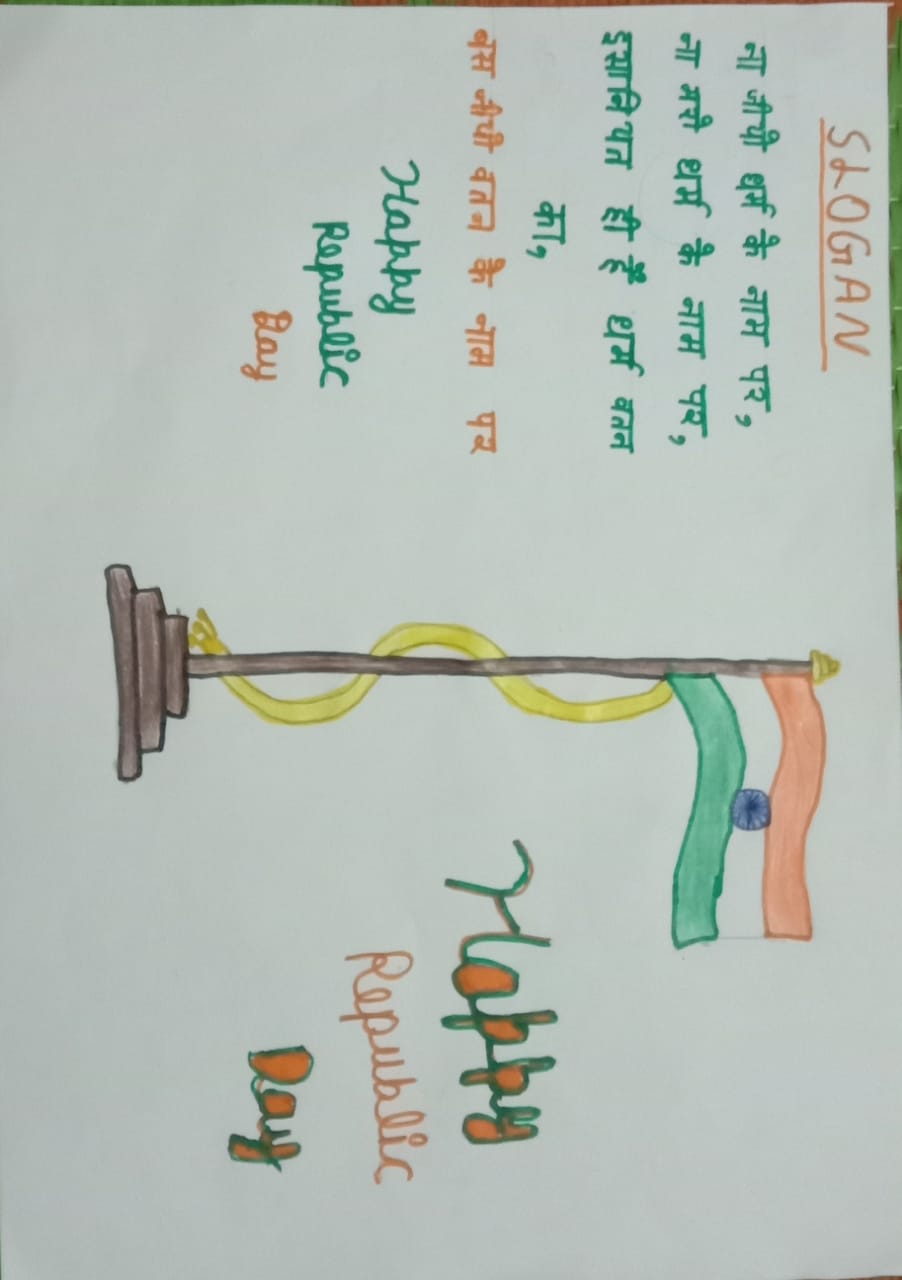 SLOGAN
ना जीयो धर्म के नाम पर,
ना मरो धर्म के नाम पर,
इंसानियत ही हैं धर्म वतन
का,
बस जीयो वतन के नाम पर
Happy
Republic
Day
Happy
Republic
Day